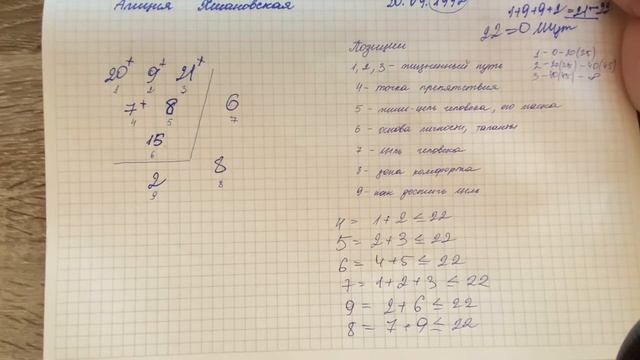 Алиция Яшановская 20.09.1997
1+9+9+2=21-22
22=0 Шут
20+ 9+ 21+
1 2 3
7+ 8 6
4 5 7
15
6
2 8
9 8
Позиции
1, 2, 3 - жизненный путь
4 - точка препятствия
5 - мини-цель человека, его маска
6 - основа личности, таланты
7 - цель человека
8 - зона комфорта
9 - как достичь цель
1 - 0-20(25)
2 - 20(25) - 40(45)
3 - 40(45) - ∞
4 = 1+2 ≤ 22
5 = 2+3 ≤ 22
6 = 4+5 ≤ 22
7 = 1+2+3 ≤ 22
9 = 2+6 ≤ 22
8 = 7+9 ≤ 22